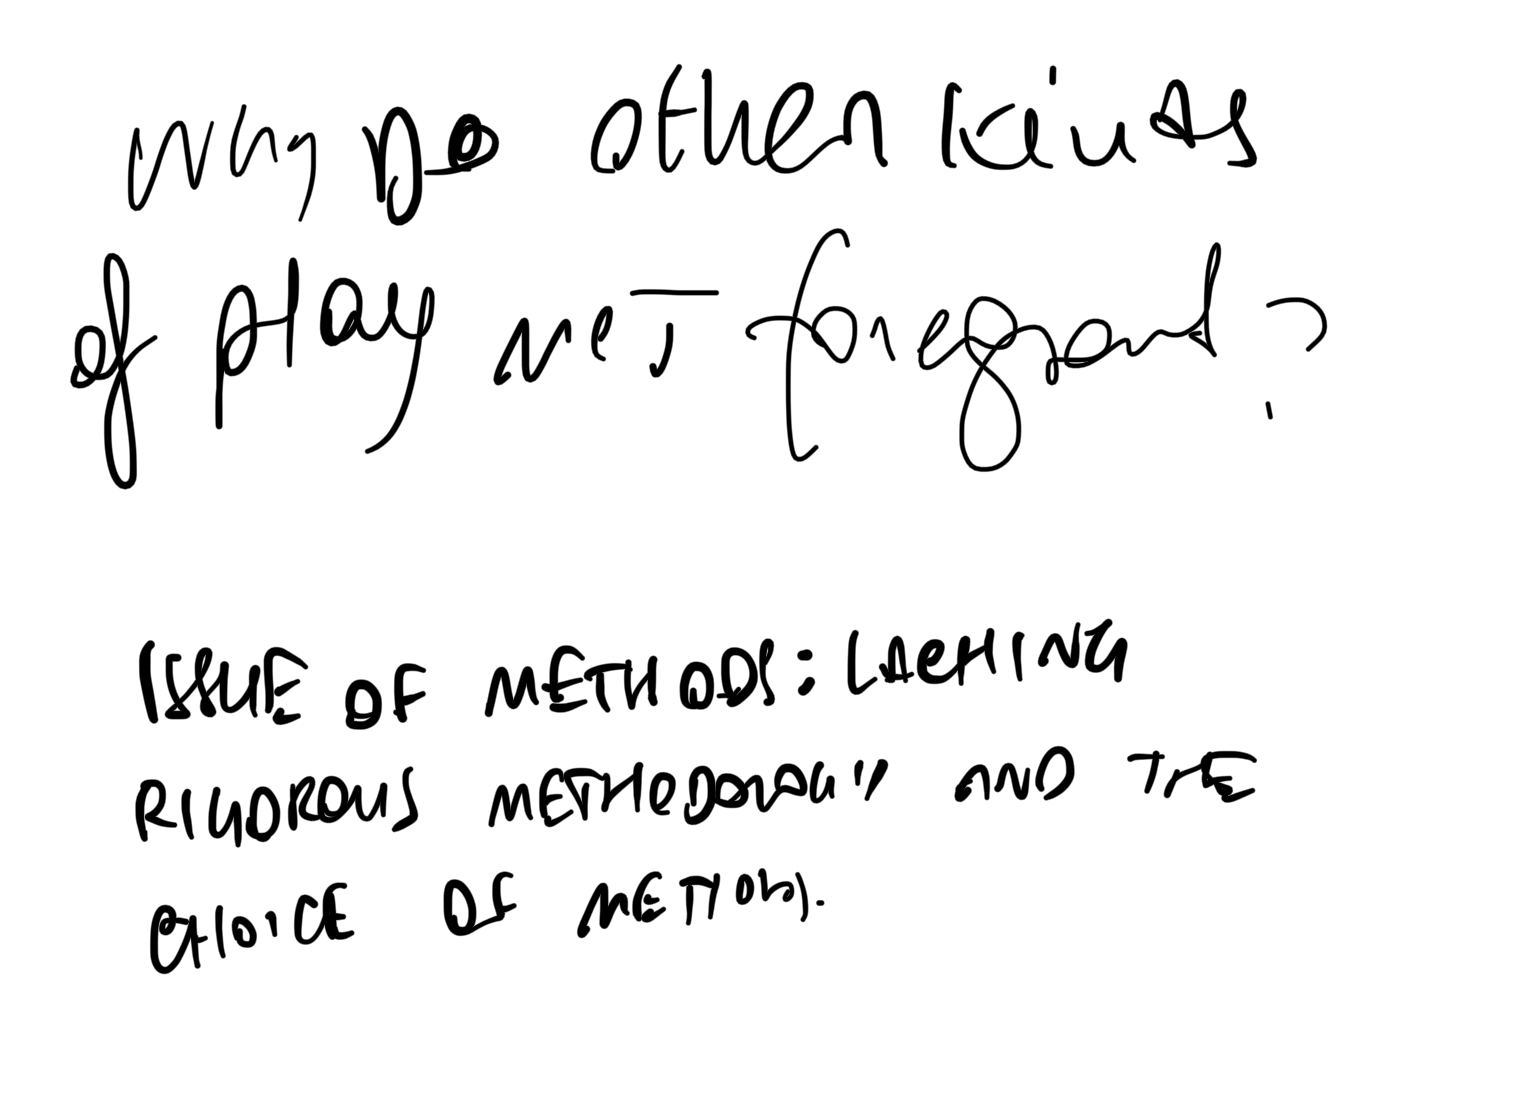 Why Do other kinds
of play not foreground?
ISSUE OF METHODS: LACKING
RIGOROUS METHODOLOGY AND THE
CHOICE OF METHODS.